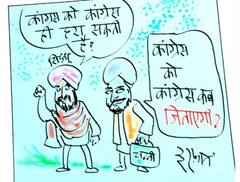 कांग्रेस को कांग्रेस
ही हरा सकती
है?
सिद्धू
कांग्रेस
को
कांग्रेस कब
जिताएगी?
चन्नी